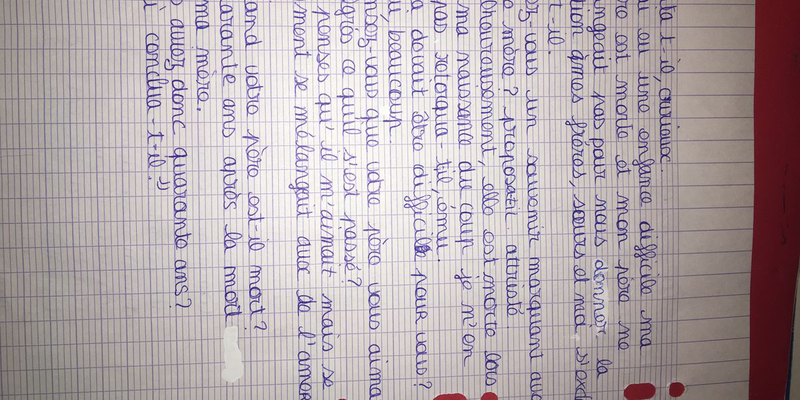 ta t-il, curieux.
i eu une enfance difficile ma
re est morte et mon père ne
ngeait pas pour nous donner la
ion à mes frères, sœurs et moi, s'excl
t-il.
ez-vous un souvenir marquant avec
e mère? proposa-t-il attristé.
lheureusement, elle est morte lors
ma naissance du coup je n'en
pas rétorqua-til, ému.
a devait être difficile pour vous?
i, beaucoup.
nsez-vous que votre père vous aima
grès ce qu'il s'est passé?
penses qu'il m'aimait mais se
ment se mélangeait aux de l'amour
and votre père est-il mort?
arante ans après la mort
ma mère.
s avez donc quarante ans?
i conclua-t-il."